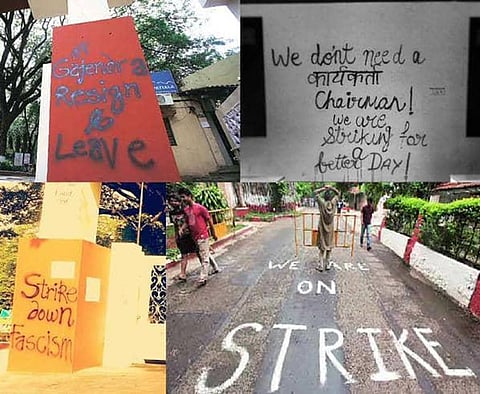 Gajendra
Resign
&
Leave
We don't need a
कार्यकर्ता
Chairman!
we are
striking for
a
better DAY!
Strike
down
Fascism
WE ARE
ON
STRIKE